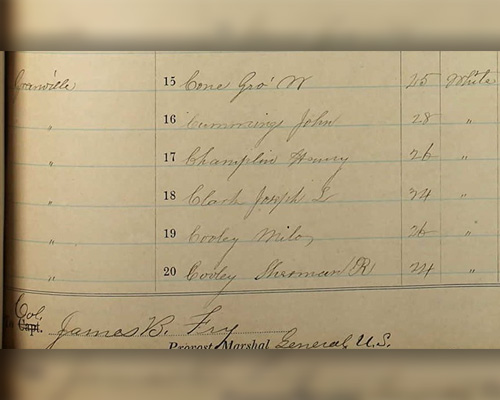 15 Cone Geo' W 25 White
" 16 Cummings John 28 "
" 17 Champlin Henry 26 "
" 18 Clark Joseph L 34 "
" 19 Cooley Milo 26 "
" 20 Cooley Sherman R 24 "
Col.
Capt. James B. Fry
Provost Marshal General, U.S.